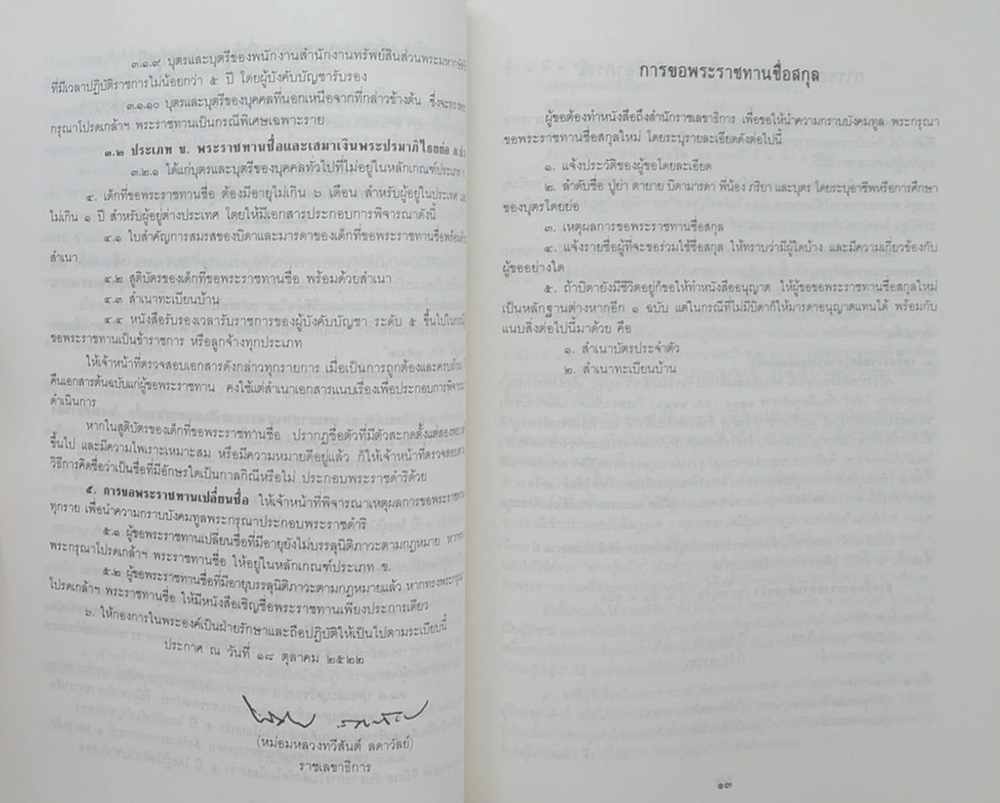 ๓.๑.๙ บุตรและบุตรีของพนักงานสำนักงานทรัพย์สินส่วนพระมหากษัตริย์
ที่มีเวลาปฏิบัติราชการไม่น้อยกว่า ๕ ปี โดยผู้บังคับบัญชารับรอง
๓.๑.๑๐ บุตรและบุตรีของบุคคลที่นอกเหนือจากที่กล่าวข้างต้น ซึ่งจะทรงพระ
กรุณาโปรดเกล้าฯ พระราชทานเป็นกรณีพิเศษเฉพาะราย
๓.๒ ประเภท ข. พระราชทานชื่อและเสมาเงินพระปรมาภิไธยย่อ
๓.๒.๑ ได้แก่บุตรและบุตรีของบุคคลทั่วไปที่ไม่อยู่ในหลักเกณฑ์ประเภท
๔. เด็กที่ขอพระราชทานชื่อ ต้องมีอายุไม่เกิน ๖ เดือน สำหรับผู้อยู่ในประเทศ
ไม่เกิน ๑ ปี สำหรับผู้อยู่ต่างประเทศ โดยให้มีเอกสารประกอบการพิจารณาดังนี้
๔.๑ ใบสำคัญการสมรสของบิดาและมารดาของเด็กที่ขอพระราชทานชื่อพร้อมด้วย
สำเนา
๔.๒ สูติบัตรของเด็กที่ขอพระราชทานชื่อ พร้อมด้วยสำเนา
๔.๓ สำเนาทะเบียนบ้าน
๔.๔ หนังสือรับรองเวลารับราชการของผู้บังคับบัญชา ระดับ ๕ ขึ้นไปในกรณี
ขอพระราชทานเป็นข้าราชการ หรือลูกจ้างทุกประเภท
ให้เจ้าหน้าที่ตรวจสอบเอกสารดังกล่าวทุกรายการ เมื่อเป็นการถูกต้องและครบถ้วน
คืนเอกสารต้นฉบับแก่ผู้ขอพระราชทาน คงใช้แต่สำเนาเอกสารแนบเรื่องเพื่อประกอบการพิจารณา
ดำเนินการ
หากในสูติบัตรของเด็กที่ขอพระราชทานชื่อ ปรากฏชื่อตัวที่มีตัวสะกดตั้งแต่สองพยางค์
ขึ้นไป และมีความไพเราะเหมาะสม หรือมีความหมายดีอยู่แล้ว ก็ให้เจ้าหน้าที่ตรวจสอบตาม
วิธีการคิดชื่อว่าเป็นชื่อที่มีอักษรใดเป็นกาลกิณีหรือไม่ ประกอบพระราชดำริด้วย
๕. การขอพระราชทานเปลี่ยนชื่อ ให้เจ้าหน้าที่พิจารณาเหตุผลการขอพระราชทาน
ทุกราย เพื่อนำความกราบบังคมทูลพระกรุณาประกอบพระราชดำริ
๕.๑ ผู้ขอพระราชทานเปลี่ยนชื่อที่มีอายุยังไม่บรรลุนิติภาวะตามกฎหมาย หากทรง
พระกรุณาโปรดเกล้าฯ พระราชทานชื่อ ให้อยู่ในหลักเกณฑ์ประเภท ข.
๕.๒ ผู้ขอพระราชทานชื่อที่มีอายุบรรลุนิติภาวะตามกฎหมายแล้ว หากทรงพระกรุณา
โปรดเกล้าฯ พระราชทานชื่อ ให้มีหนังสือเชิญชื่อพระราชทานเพียงประการเดียว
๖. ให้กองการในพระองค์เป็นฝ่ายรักษาและถือปฏิบัติให้เป็นไปตามระเบียบนี้
ประกาศ ณ วันที่ ๑๘ ตุลาคม ๒๕๒๒
(หม่อมหลวงทวีสันต์ ลดาวัลย์)
ราชเลขาธิการ
การขอพระราชทานชื่อสกุล
ผู้ขอต้องทำหนังสือถึงสำนักราชเลขาธิการ เพื่อขอให้นำความกราบบังคมทูล พระกรุณา
ขอพระราชทานชื่อสกุลใหม่ โดยระบุรายละเอียดดังต่อไปนี้
๑. แจ้งประวัติของผู้ขอโดยละเอียด
๒. ลำดับชื่อ ปู่ย่า ตายาย บิดามารดา พี่น้อง ภริยา และบุตร โดยระบุอาชีพหรือการศึกษา
ของบุตรโดยย่อ
๓. เหตุผลการขอพระราชทานชื่อสกุล
๔. แจ้งรายชื่อผู้ที่จะขอร่วมใช้ชื่อสกุล ให้ทราบว่ามีผู้ใดบ้าง และมีความเกี่ยวข้องกับ
ผู้ขออย่างใด
๕. ถ้าบิดายังมีชีวิตอยู่ก็ขอให้ทำหนังสืออนุญาต ให้ผู้ขอขอพระราชทานชื่อสกุลใหม่
เป็นหลักฐานต่างหากอีก ๑ ฉบับ แต่ในกรณีที่ไม่มีบิดาก็ให้มารดาอนุญาตแทนได้ พร้อมกับ
แนบสิ่งต่อไปนี้มาด้วย คือ
๑. สำเนาบัตรประจำตัว
๒. สำเนาทะเบียนบ้าน
๑๓